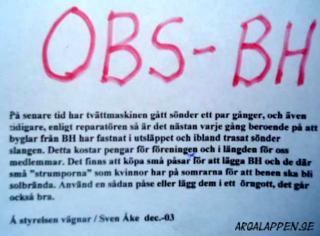 OBS-BH
På senare tid har tvättmaskinen gått sönder ett par gånger, och även
tidigare, enligt reparatören så är det nästan varje gång beroende på att
byglar från BH har fastnat i utsläppet och ibland trasat sönder
slangen. Detta kostar pengar för föreningen och i längden för oss
medlemmar. Det finns att köpa små påsar för att lägga BH och de där
små "strumporna" som kvinnor har på somrarna för att benen ska bli
solbrända. Använd en sådan påse eller lägg dem i ett örngott, det går
också bra.
Å styrelsen vägnar / Sven Åke dec.-03
ARGALAPPEN.SE